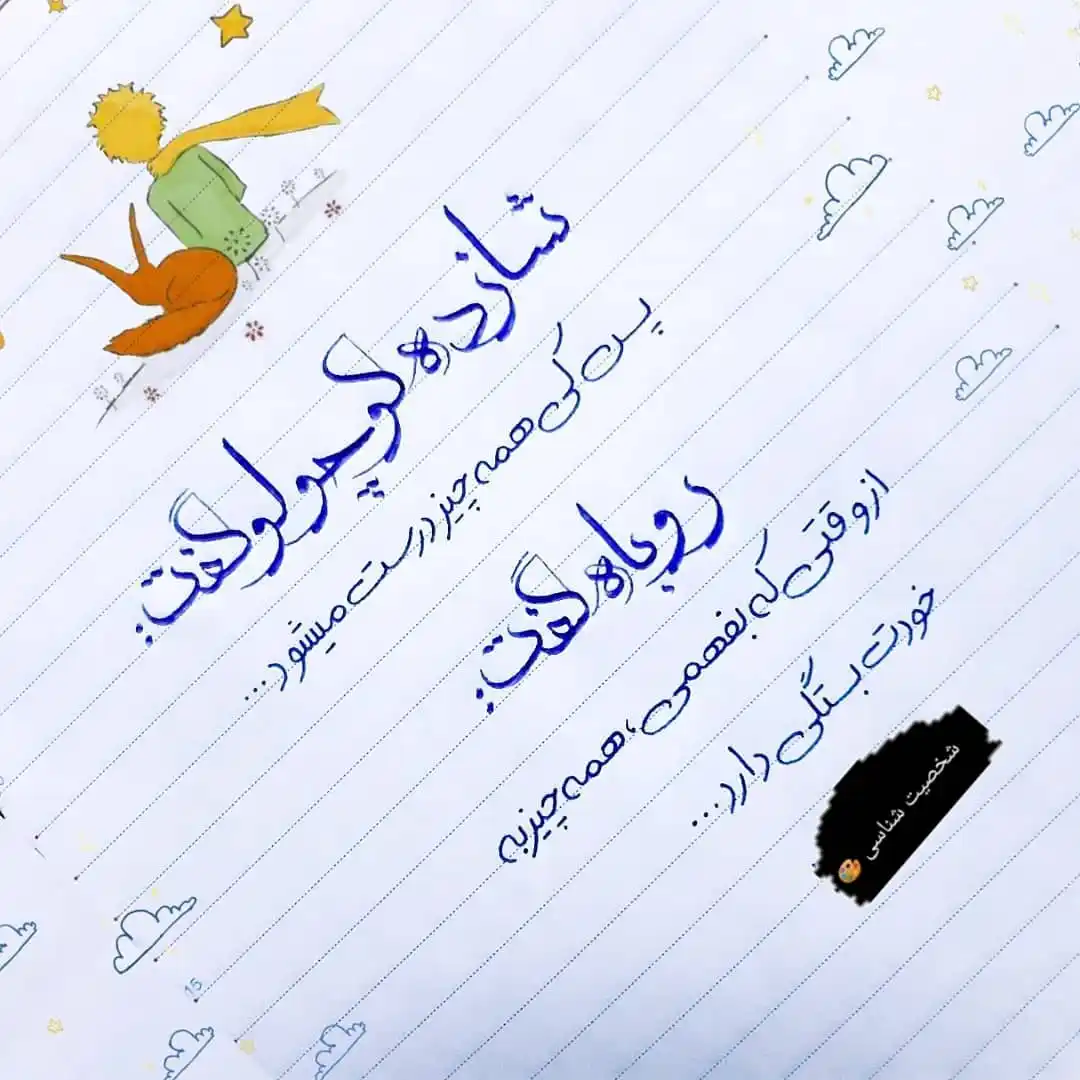 شازده کوچولو گفت:
پس کی همه چیز درست میشود...
روباه گفت:
از وقتی که بفهمی، همه چیز به
خودت بستگی دارد...
شخصیت شناسی
15